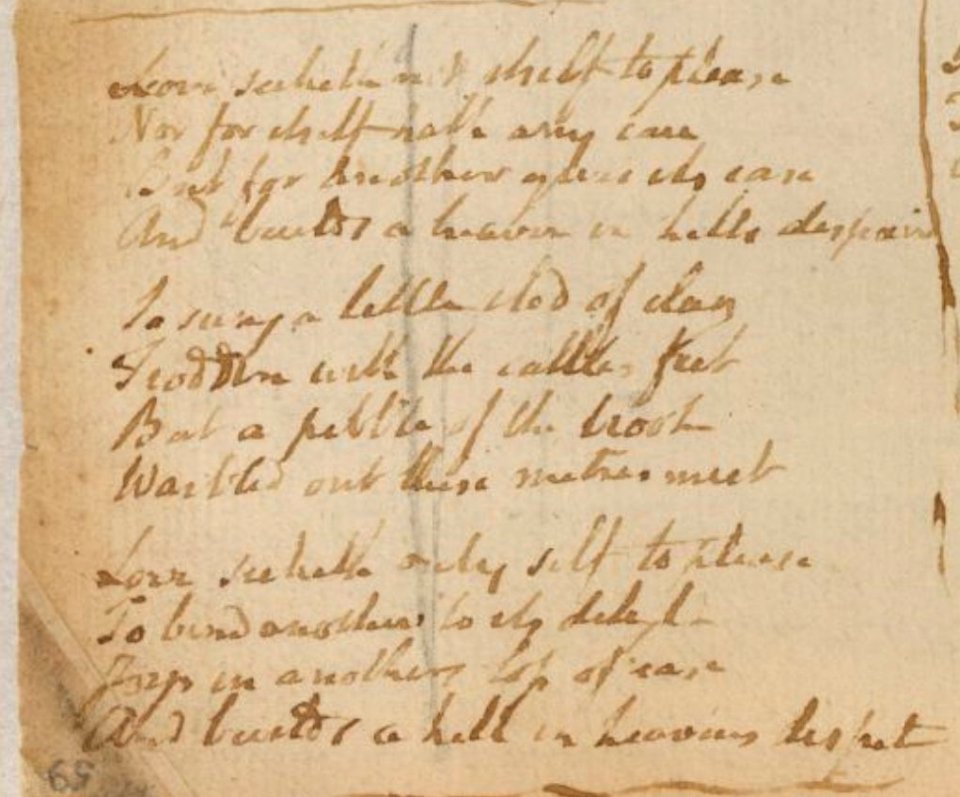 Love seeketh not itself to please
Nor for itself hath any care
But for another gives its ease
And builds a heaven in hells despair
So sung a little clod of clay
Trodden with the cattles feet
But a pebble of the brook
Warbled out these metres meet
Love seeketh only self to please
To bind another to its delight
Joys in anothers loss of ease
And builds a hell in heavens despite
59